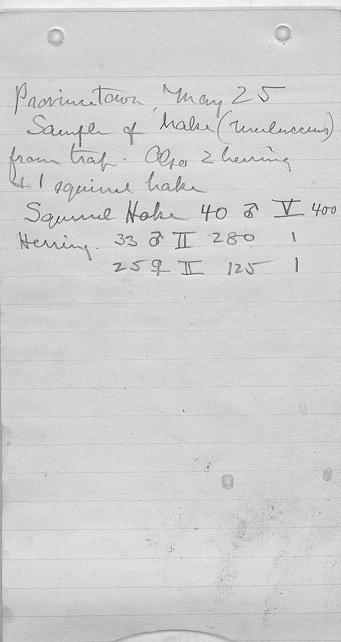 Provincetown, May 25
Sample of hake (merluccius)
from trap. Also 2 herring
+ 1 squirrel hake
Squirrel Hake 40 ♂ V 400
Herring. 33 ♂ II 280 1
25 ♀ II 125 1